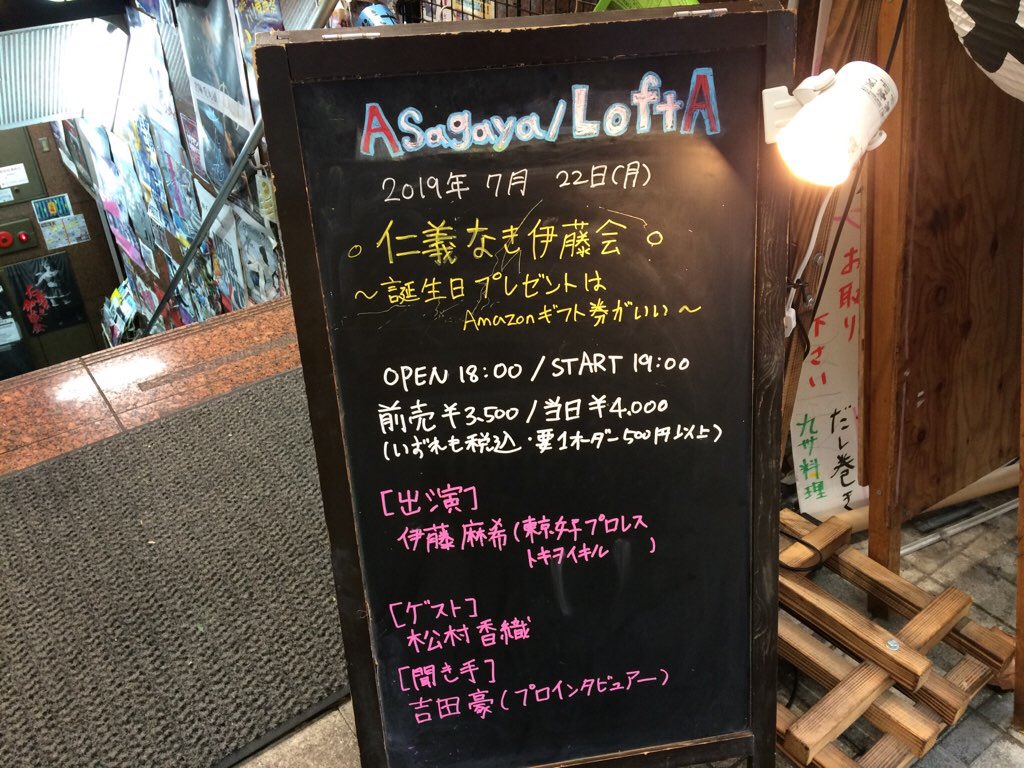 Asagaya/LoftA
2019年 7月 22日(月)
。仁義なき伊藤会。
～誕生日プレゼントは
Amazonギフト券がいい～
OPEN 18:00 / START 19:00
前売¥3,500 / 当日¥4,000
(いずれも税込・要1オーダー500円以上)
[出演]
伊藤麻希(東京女子プロレス
トキヲイキル )
[ゲスト]
松村香織
[聞き手]
吉田豪(プロインタビュアー)
お取り
下さい
だし巻き
九州料理